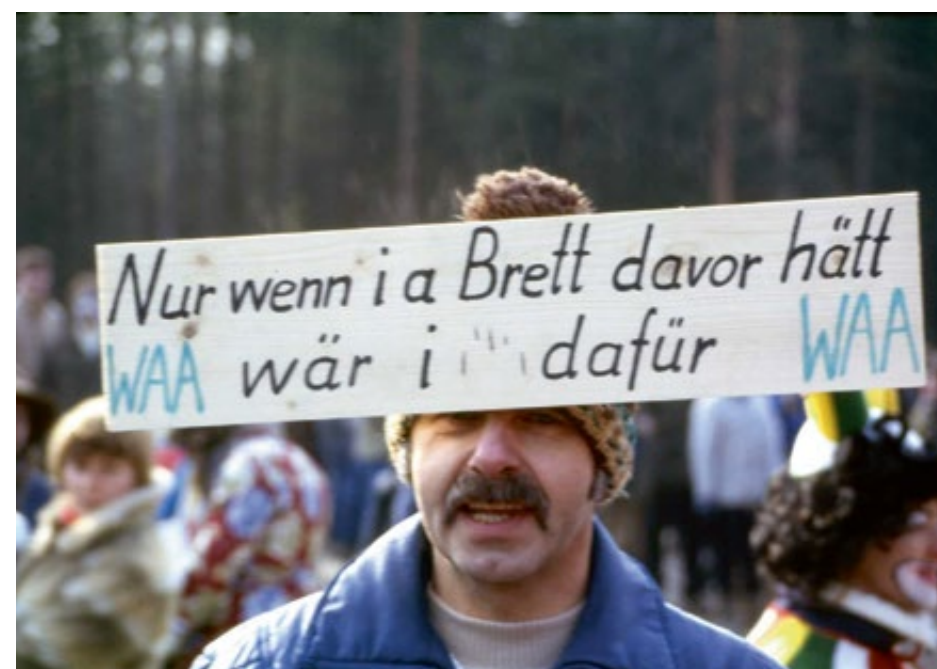 Nur wenn i a Brett davor hätt
WAA wär i dafür WAA